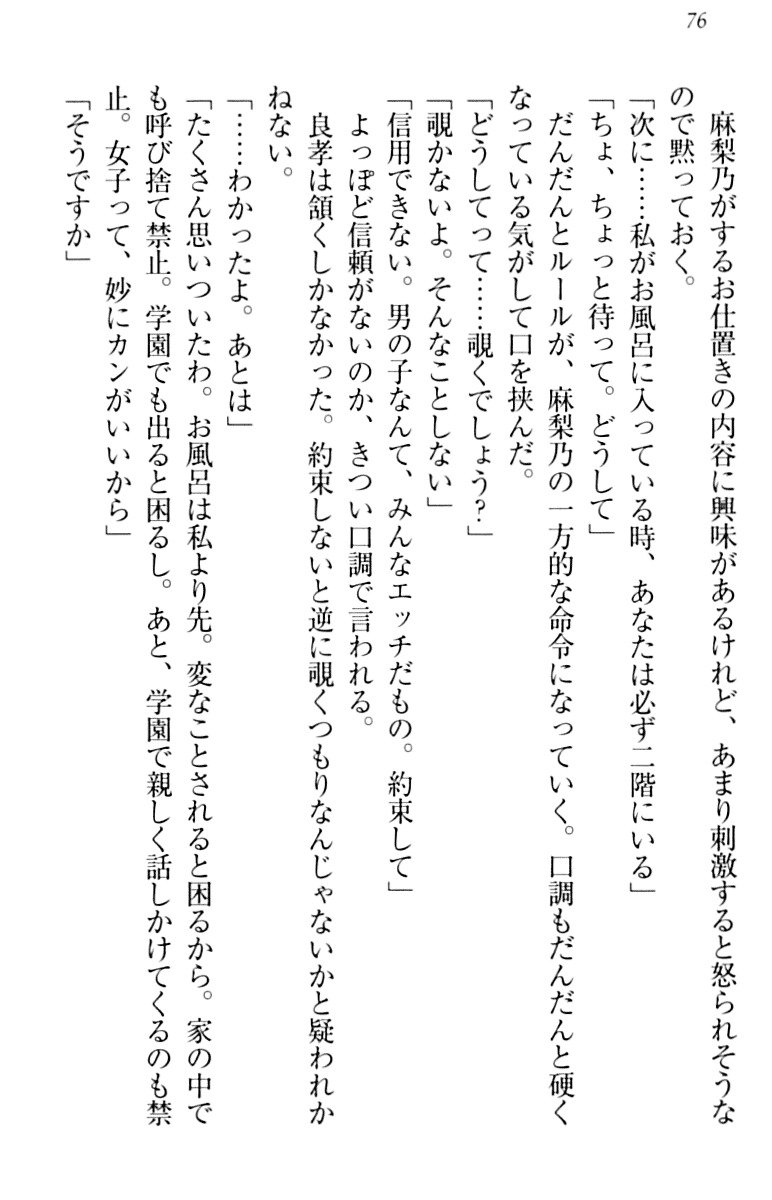 76
麻梨乃がするお仕置きの内容に興味があるけれど、あまり刺激すると怒られそうな
ので黙っておく。
「次に……私がお風呂に入っている時、あなたは必ず二階にいる」
「ちょ、ちょっと待って。どうして」
だんだんとルールが、麻梨乃の一方的な命令になっていく。口調もだんだんと硬く
なっている気がして口を挟んだ。
「どうしてって……覗くでしょう？」
「覗かないよ。そんなことしない」
「信用できない。男の子なんて、みんなエッチだもの。約束して」
よっぽど信頼がないのか、きつい口調で言われる。
良孝は頷くしかなかった。約束しないと逆に覗くつもりなんじゃないかと疑われか
ねない。
「……わかったよ。あとは」
「たくさん思いついたわ。お風呂は私より先。変なことされると困るから。家の中で
も呼び捨て禁止。学園でも出ると困るし。あと、学園で親しく話しかけてくるのも禁
止。女子って、妙にカンがいいから」
「そうですか」